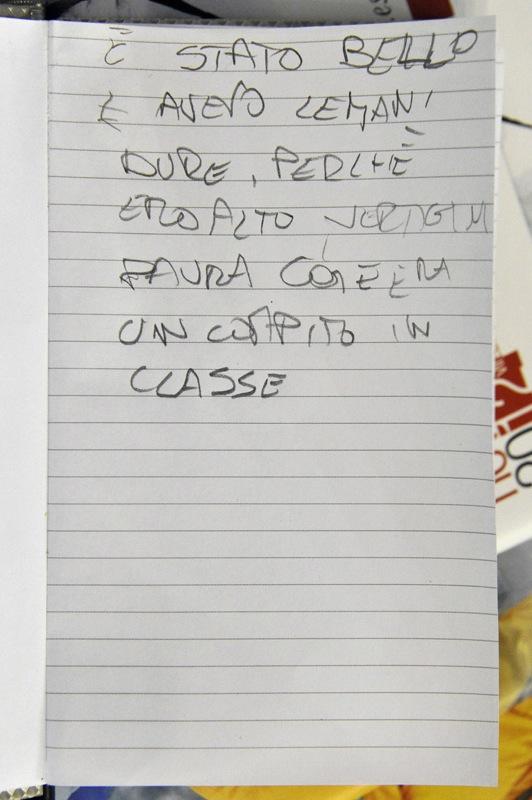 È STATO BELLO
E AVEVO LE MANI
DURE, PERCHÈ
ERO ALTO VERTIGINI
PAURA COM'E ERA
UN COMPITO IN
CLASSE